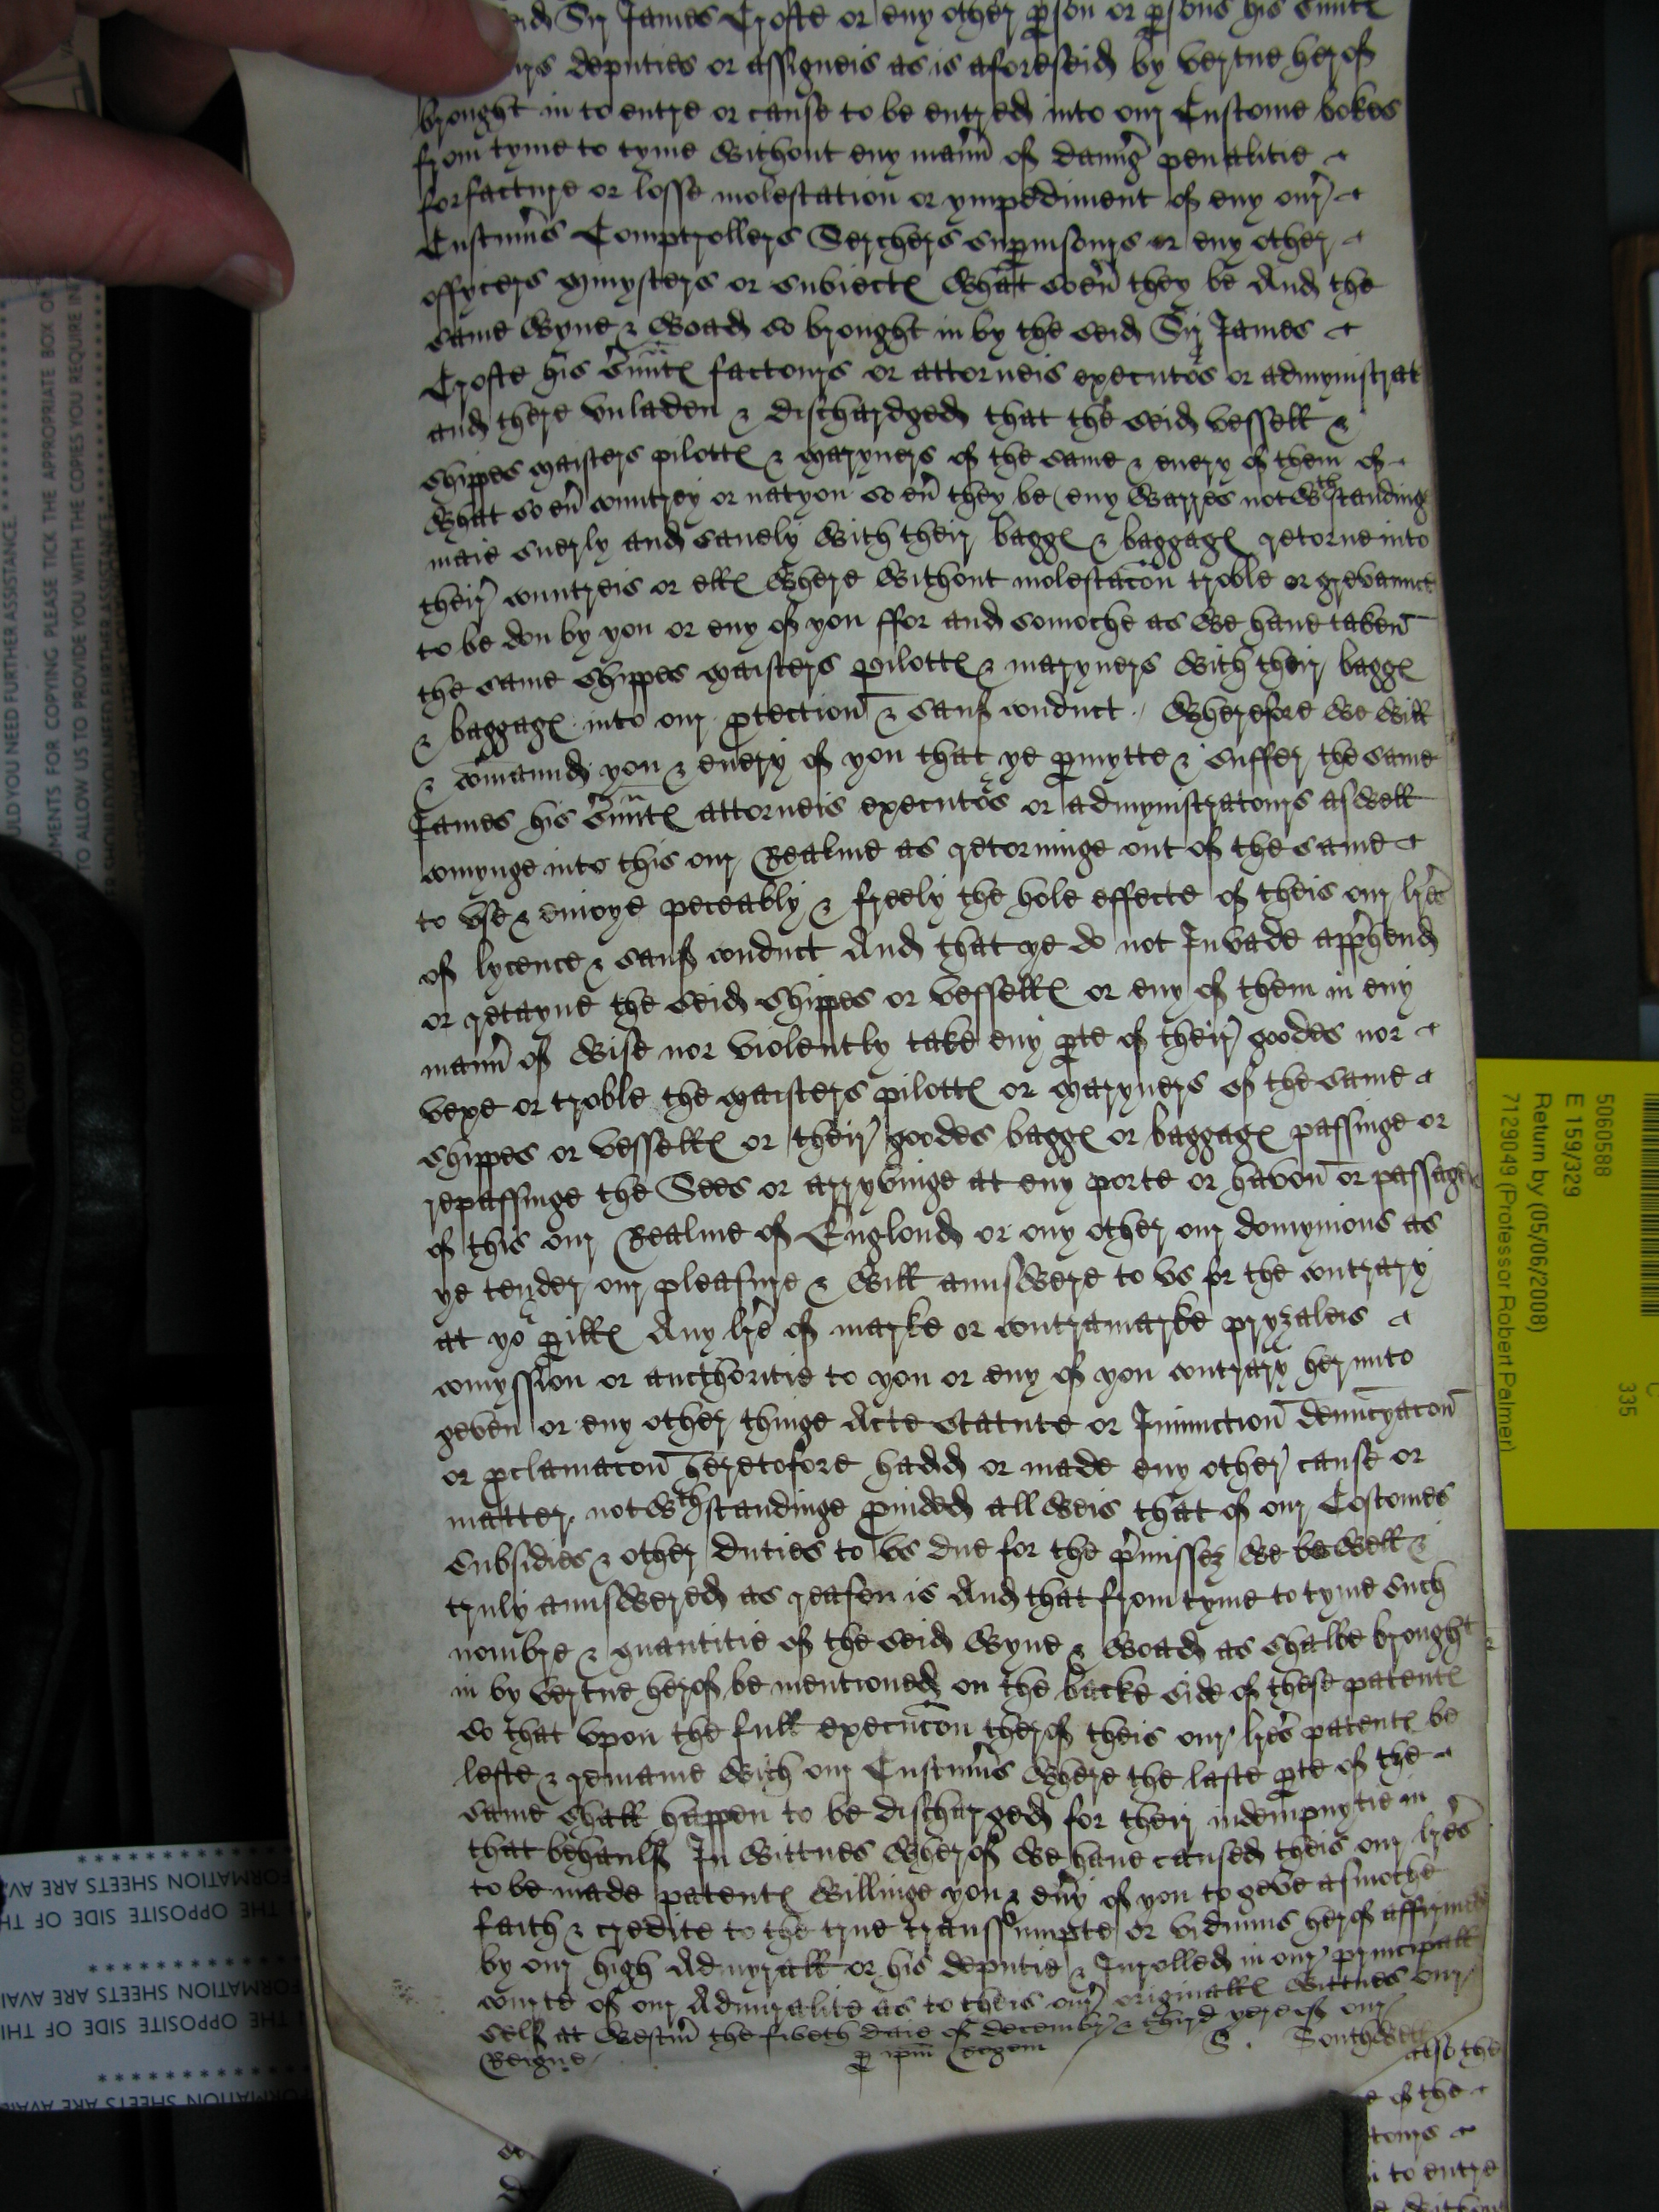 seid Sir James Crofte or eny other pson or psons his suntꝭ
deputies or assigneis as is aforeseid by vertue herof
brought in to entre or cause to be entred into our Custome bokes
from tyme to tyme without eny mann of daung penalitie
forfacture or losse molestation or ympediment of eny our
Custums Comptrollers Serchers supuisours or eny other
offycers mynysters or subiectꝭ what soeu they be And the
same wyne & woad so brought in by the seid Sir James
Crofte his suntꝭ factours or attorneis executos or admynistrat
and there vnladen & dischardged that the seid vessell &
shippes maisters pilottꝭ & maryners of the same & euery of them of
what so eu countrey or natyon so eu they be (eny warres notwthstanding
maie suerly and sauely with their baggꝭ & baggagꝭ retorne into
their countreis or ellꝭ where without molestacon troble or grevaunce
to be don by you or eny of you ffor and somoche as we haue taken
the same shippes maisters pilottꝭ & maryners with their baggꝭ
& baggagꝭ into our ptection & sauf conduct Wherefore we will
& comaund you & euery of you that ye pmytte & suffer the same
James his suntꝭ attorneis executos or admynistratours aswell
comynge into this our Realme as retorninge out of the same
to vse & enioye peceably & freely the hole effecte of theis our lres
of lycence & sauf conduct And that ye do not Invade apphend
or retayne the seid shippes or vessellꝭ or eny of them in eny
mann of wise nor violently take eny pte of their goodes nor
vexe or troble the maisters pilottꝭ or maryners of the same
shippes or vessellꝭ or their goodes baggꝭ or baggagꝭ passinge or
repassinge the Sees or arryvinge at eny porte or havon or passage
of this our Realme of Englond or ony other our domynions as
ye tender our pleasure & will aunswere to vs for the contrary
at yor pillꝭ Any lre of marke or contramarke pryzaleis
comyssion or aucthoritie to you or eny of you contrary herunto
geven or eny other thinge Acte statute or Iniunction denuncyacon
or pclamacon heretofore hadd or made eny other cause or
matter notwthstandinge puided allweis that of our Costomes
subsidies & other duties to vs due for the pmissez we be well &
truly aunswered as reason is And that from tyme to tyme such
nombre & quantitie of the seid wyne & woad as shalbe brought
in by vertue herof be mentioned on the backe side of these patentꝭ
so that vpon the full execucon therof theis our lres patentꝭ be
lefte & remaine with our Custums where the laste pte of the
same shall happen to be discharged for their indempnytie in
that behaulf In wittnes wherof we haue caused theis our lres
to be made patentꝭ willinge you & euy of you to geve asmoche
faith & credite to the true transsumpte or vidimus herof affirmed
by our high Admyrall or his deputie & Inrolled in our principall
courte of our Admiralite as to theis our originallꝭ wittnes our
self at westm the fiveth daie of decembr & third yere of our
Reigne
p ipm Regem
S. Southwell
also the
of the
tours
in to entre
5060588
E 159/329
Return by (05/06/2008)
7129049 (Professor Robert Palmer)
335
SHOULD YOU NEED FURTHER ASSISTANCE
DOCUMENTS FOR COPYING PLEASE TICK THE APPROPRIATE BOX
TO ALLOW US TO PROVIDE YOU WITH THE COPIES YOU REQUIRE
FORMATION SHEETS ARE
THE OPPOSITE SIDE OF
FORMATION SHEETS ARE AVAI
OPPOSITE SIDE OF THI